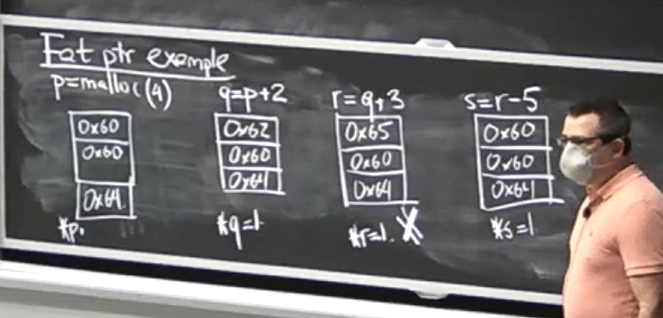 Fat ptr example
p=malloc(4)
0x60
0x60
0x64
*p.
q=p+2
0x62
0x60
0x64
*q=1
r=q+3
0x65
0x60
0x64
*r=1. X
s=r-5
0x60
0x60
0x64
*s=1